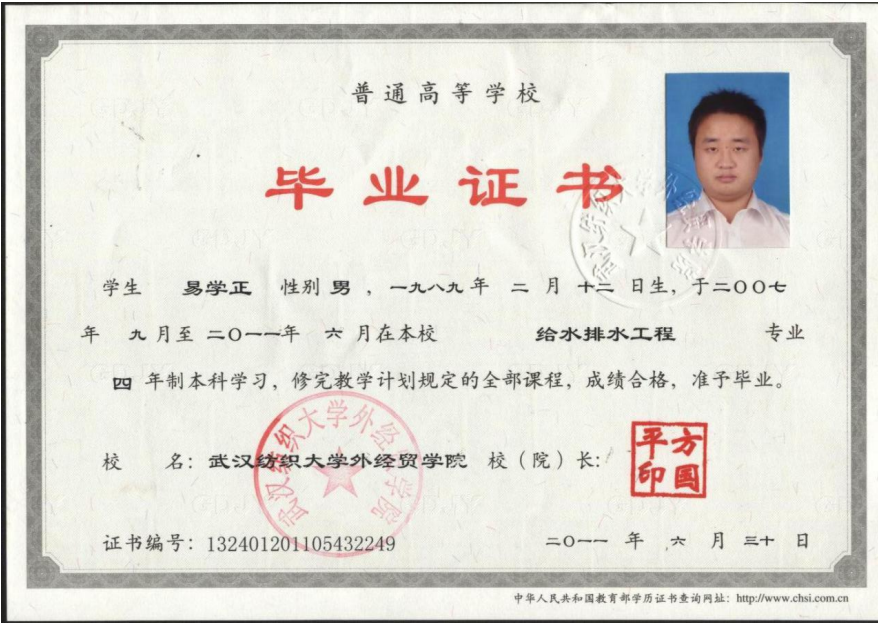 普通高等学校
毕业证书
学生 易学正 性别 男 ，一九八九 年 二 月 十二 日生，于二〇〇七
年 九 月至 二〇一一年 六 月在本校 给水排水工程 专业
四 年制本科学习，修完教学计划规定的全部课程，成绩合格，准予毕业。
校 名：武汉纺织大学外经贸学院 校（院）长：
方国平印
武汉纺织大学外经贸学院
证书编号：132401201105432249 二〇一一 年 六 月 三十 日
中华人民共和国教育部学历证书查询网址：http://www.chsi.com.cn